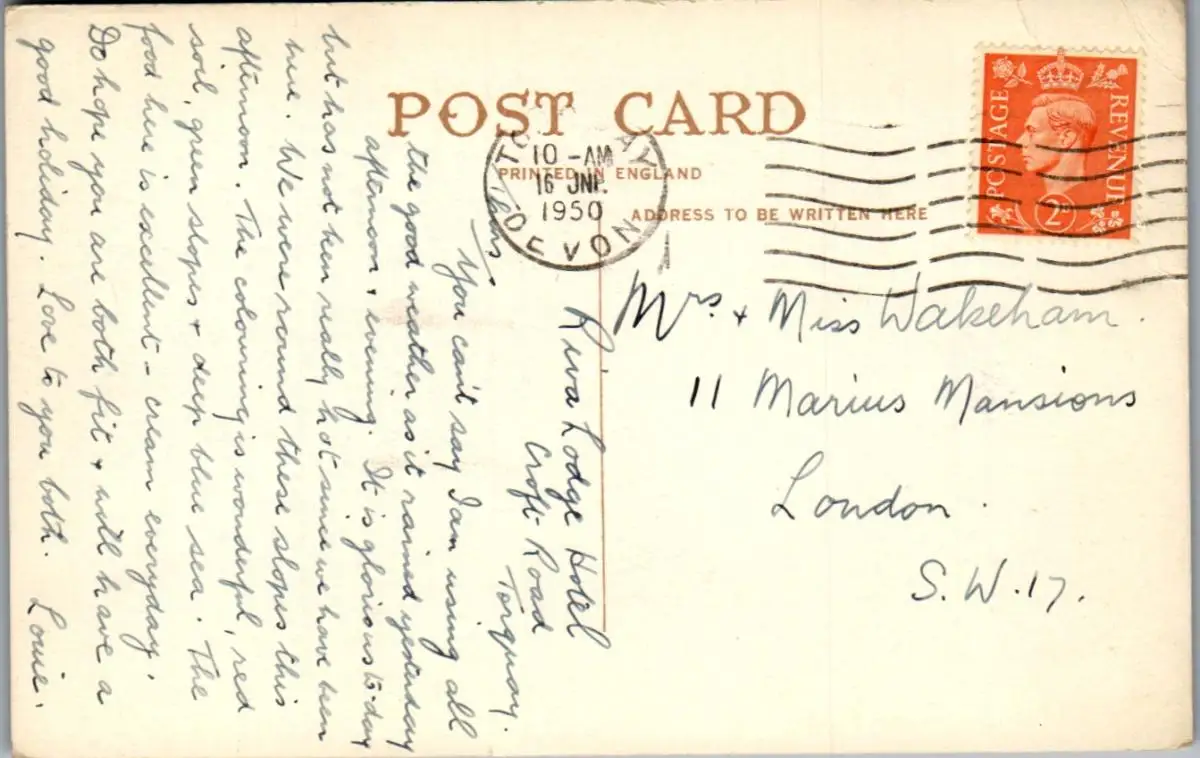 POST CARD
PRINTED IN ENGLAND
ADDRESS TO BE WRITTEN HERE
POSTAGE
REVENUE
2D
10 - AM
16 JNE
1950
DEVON
Mrs. + Miss Wakeham.
11 Marius Mansions
London.
S.W.17.
Riva Lodge Hotel
Croft Road
Torquay.
Thurs.
You can't say I am using all
the good weather as it rained yesterday
afternoon + evening. It is glorious to-day
but has not been really hot since we have been
here. We were round these slopes this
afternoon. The colouring is wonderful, red
soil, green slopes + deep blue sea. The
food here is excellent - cream everyday.
Do hope you are both fit + will have a
good holiday. Love to you both. Louie.